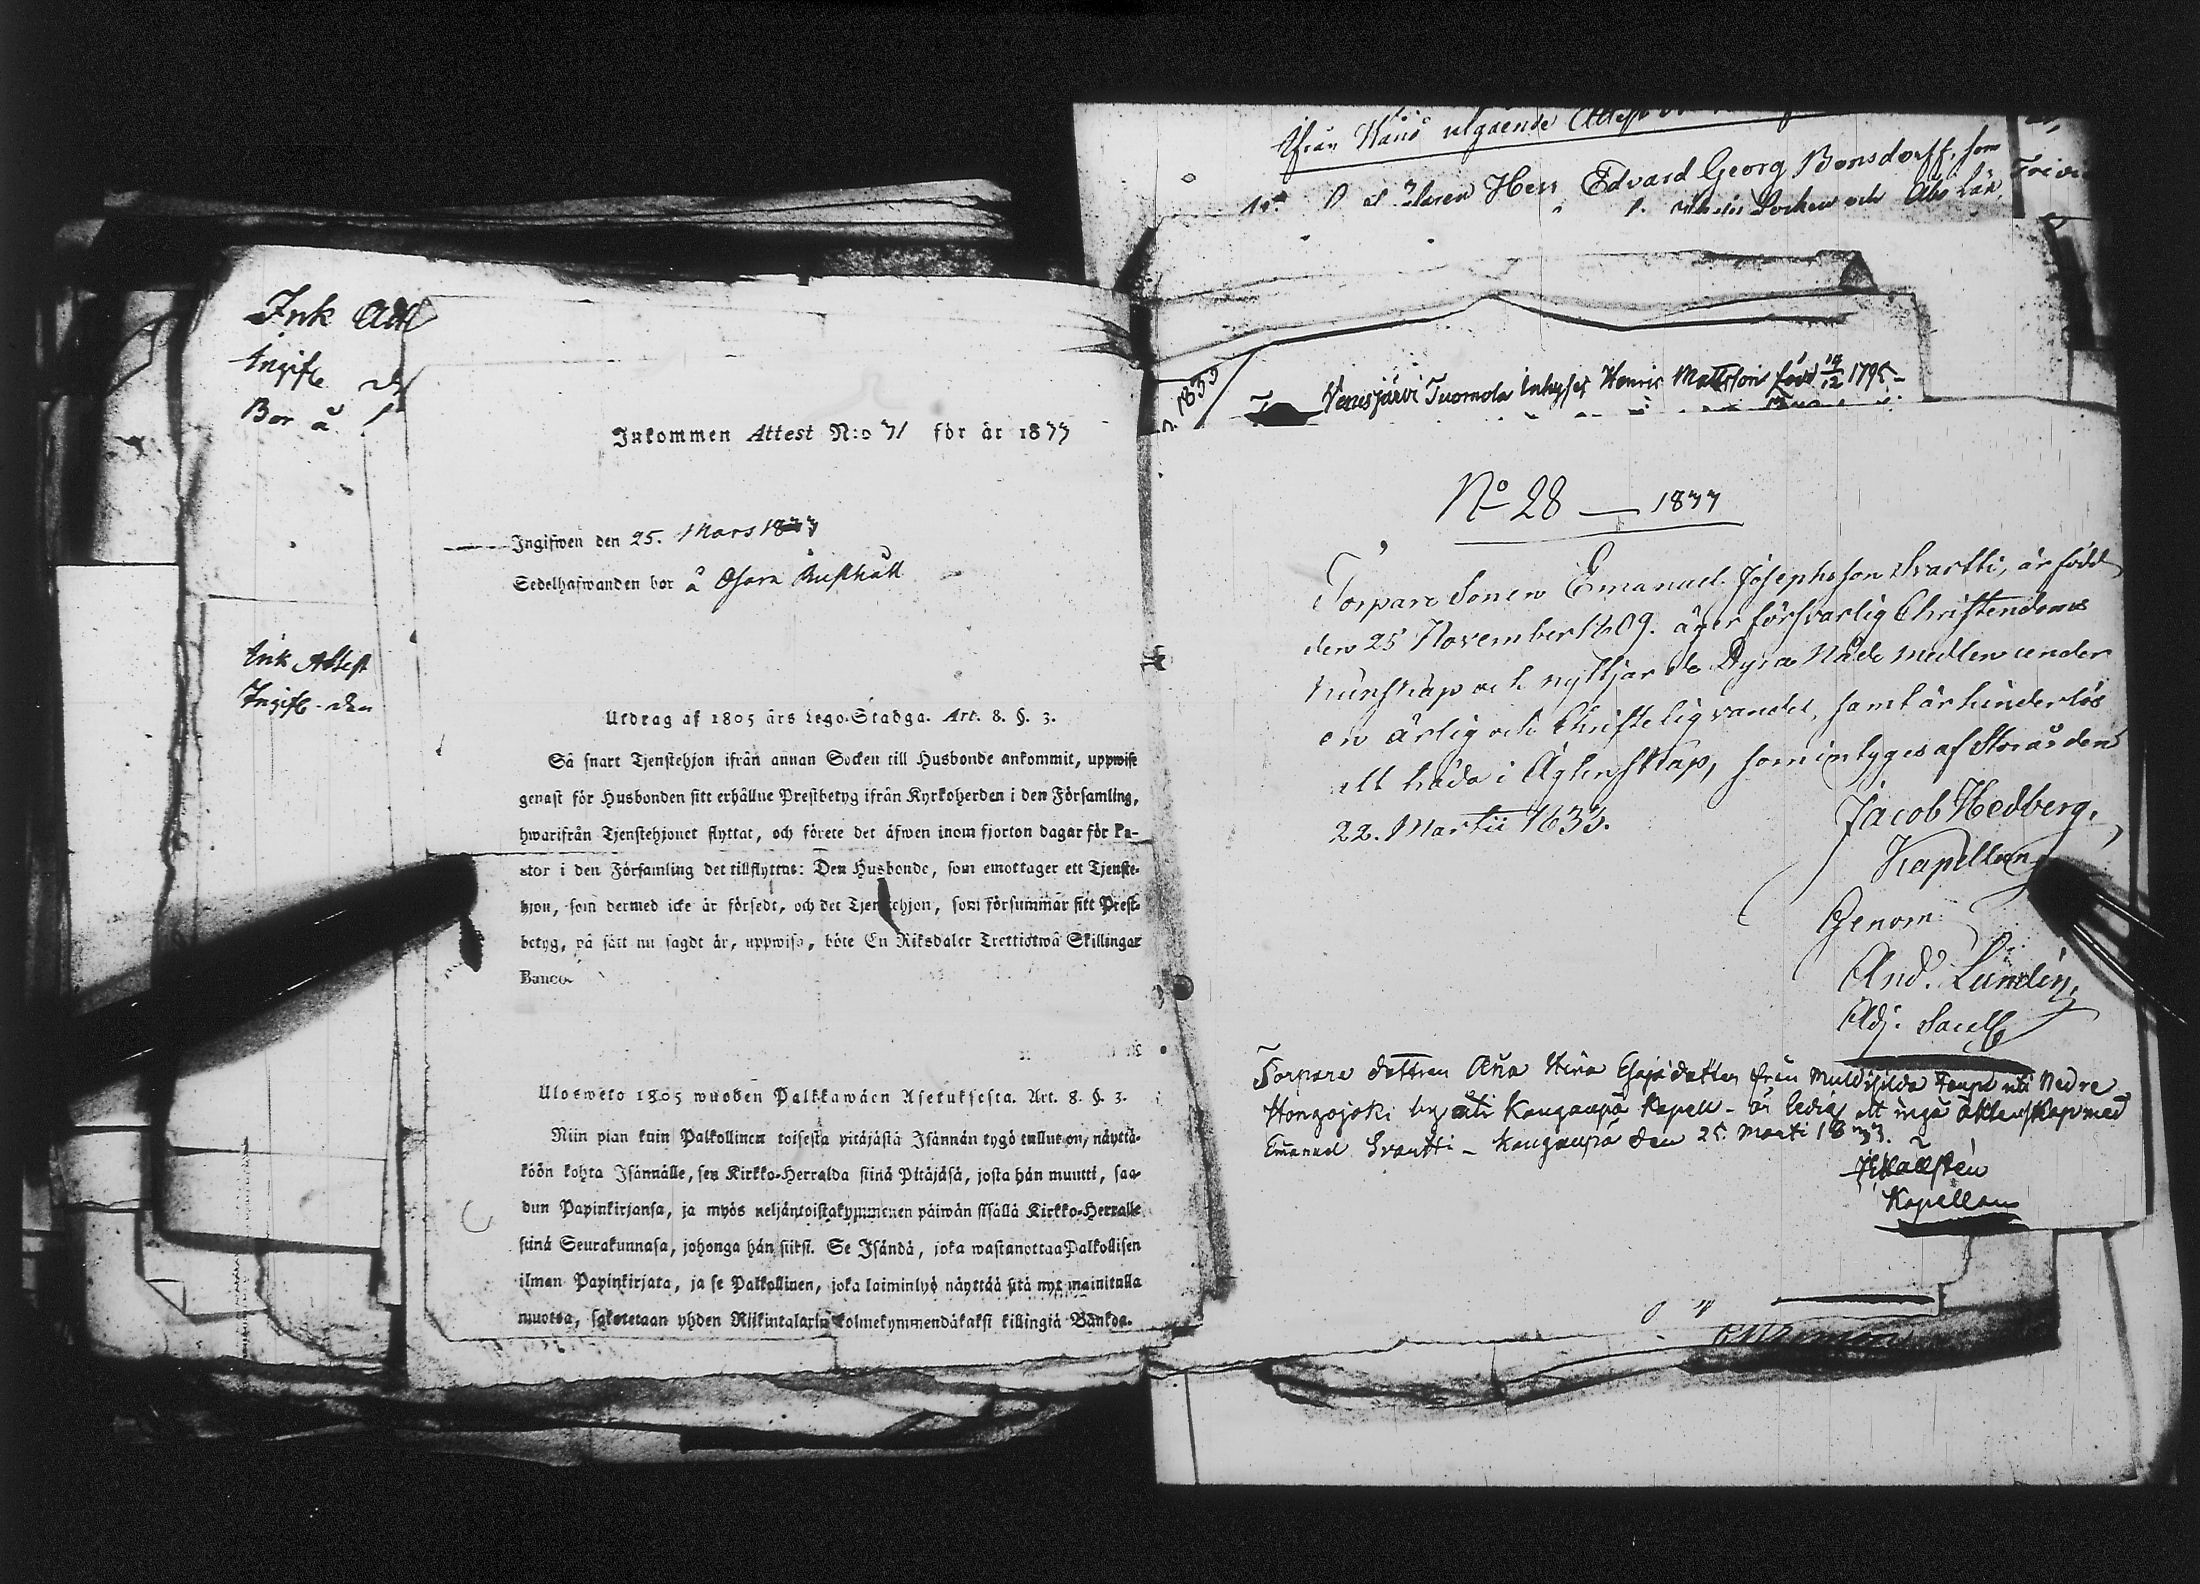 Ink Att
Ingifv d
Bor å
Ink Attest
Ingifv. den
Inkommen Attest N:o 71 för år 1833
Ingifwen den 25. Mars 1833
Sedelhafwanden bor å Rusthåll
Utdrag af 1805 års Lego-Stadga. Art. 8. §. 3.
Så snart Tjenstehjon ifrån annan Socken till Husbonde ankommit, uppwise
genast för Husbonden sitt erhållne Prestbetyg ifrån Kyrkoherden i den Församling,
hwarifrån Tjenstehjonet flyttat, och förete det äfwen inom fjorton dagar för Pa-
stor i den Församling det tillflyttat: Den Husbonde, som emottager ett Tjenste-
hjon, som dermed icke är försedt, och det Tjenstehjon, som försummar sitt Prest-
betyg, på sätt nu sagdt är, uppwisa, böte En Riksdaler Trettiotwå Skillingar
Banco.
Ulosweto 1805 wuoden Palkkawäen Asetuksesta. Art. 8. §. 3.
Niin pian kuin Palkollinen toisesta pitäjästä Isännän tygö tullut on, näyttä-
köön kohta Isännälle, sen Kirkko-Herralda siinä Pitäjäsä, josta hän muutti, saa-
dun Papinkirjansa, ja myös neljäntoistakymmenen päiwän sisällä Kirkko-Herralle
siinä Seurakunnasa, johonga hän siirsi. Se Isändä, joka wastanottaa Palkollisen
ilman Papinkirjata, ja se Palkollinen, joka laiminlyö näyttää sitä nyt mainitulla
muotoa, sakotetaan yhden Riikintalarin kolmekymmendäkaksi killingiä Bankoa.
ifrån utgående Attest
Herr Edvard Georg Bonsdorff, som
Socken och Åbo Län
1833
Venesjärvi Tuomola Inhyses Henric Mattsson född 19/12 1795
No 28 — 1833
Torpare Sonen Emanuel Josephsson Svartti, är född
den 25 November 1809. äger försvarlig Christendoms
kunskap och nyttjar de Dyra Nåde medlen under
en ärlig och Christelig vandel, samt är hinderlös
att träda i Ägtenskap, som intygas af Storå den
22. Martii 1833.
Jacob Hedberg,
Kapellan
Genom
And. Lundin,
Adj. Sacell
Torpare dottren Ana Stina Esajsdotter från Torp uti Nedre
Hongojoki by uti Kauganpä Kapell - är ledig att ingå äktenskap med
Emanuel Svartti - Kauganpä den 25. Marti 1833.
Kapellan